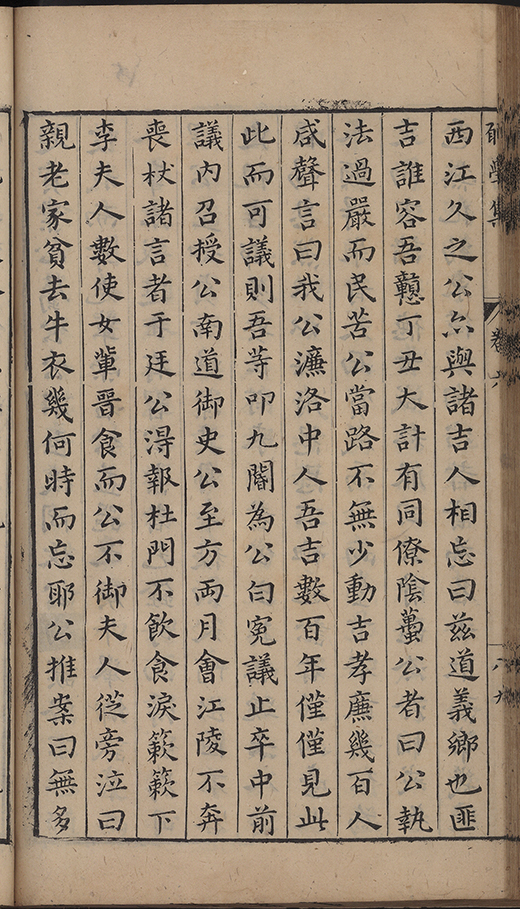 西江久之公亦與諸吉人相忘曰茲道義鄉也匪
吉誰容吾戇丁丑大計有同僚陰蠆公者曰公執
法過嚴而民苦公當路不無少動吉孝廉幾百人
咸聲言曰我公濂洛中人吾吉數百年僅僅見此
此而可議則吾等叩九閽為公白冤議止卒中前
議內召授公南道御史公至方兩月會江陵不奔
喪杖諸言者于廷公淂報杜門不飲食淚簌簌下
李夫人數使女軰晉食而公不御夫人從旁泣曰
親老家貧去牛衣幾何時而忘耶公推案曰無多
學集
卷六